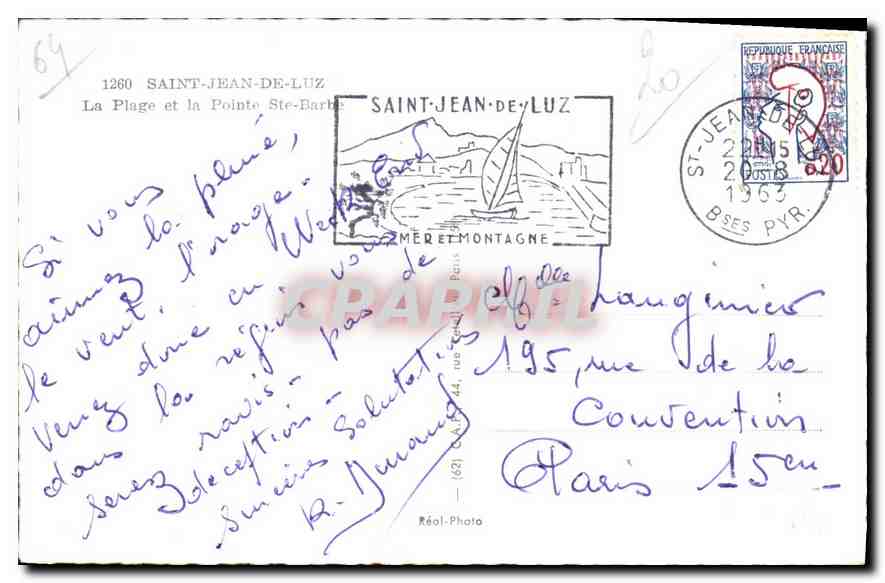 64
20
1260 SAINT-JEAN-DE-LUZ
La Plage et la Pointe Ste-Barbe
SAINT-JEAN-DE-LUZ
MER ET MONTAGNE
REPUBLIQUE FRANÇAISE
0,20
POSTES
ST-JEAN-DE-LUZ
22H15
20-8
1963
BSES PYR.
Si vous
aimez la pluie,
le vent, l'orage.
Venez donc en Week End
dans la région vous
serez ravis. pas de
déception.
Sincères Salutations
R. Durand
195, rue de la
Convention
Paris 15em
Réal-Photo
CPAPHIL